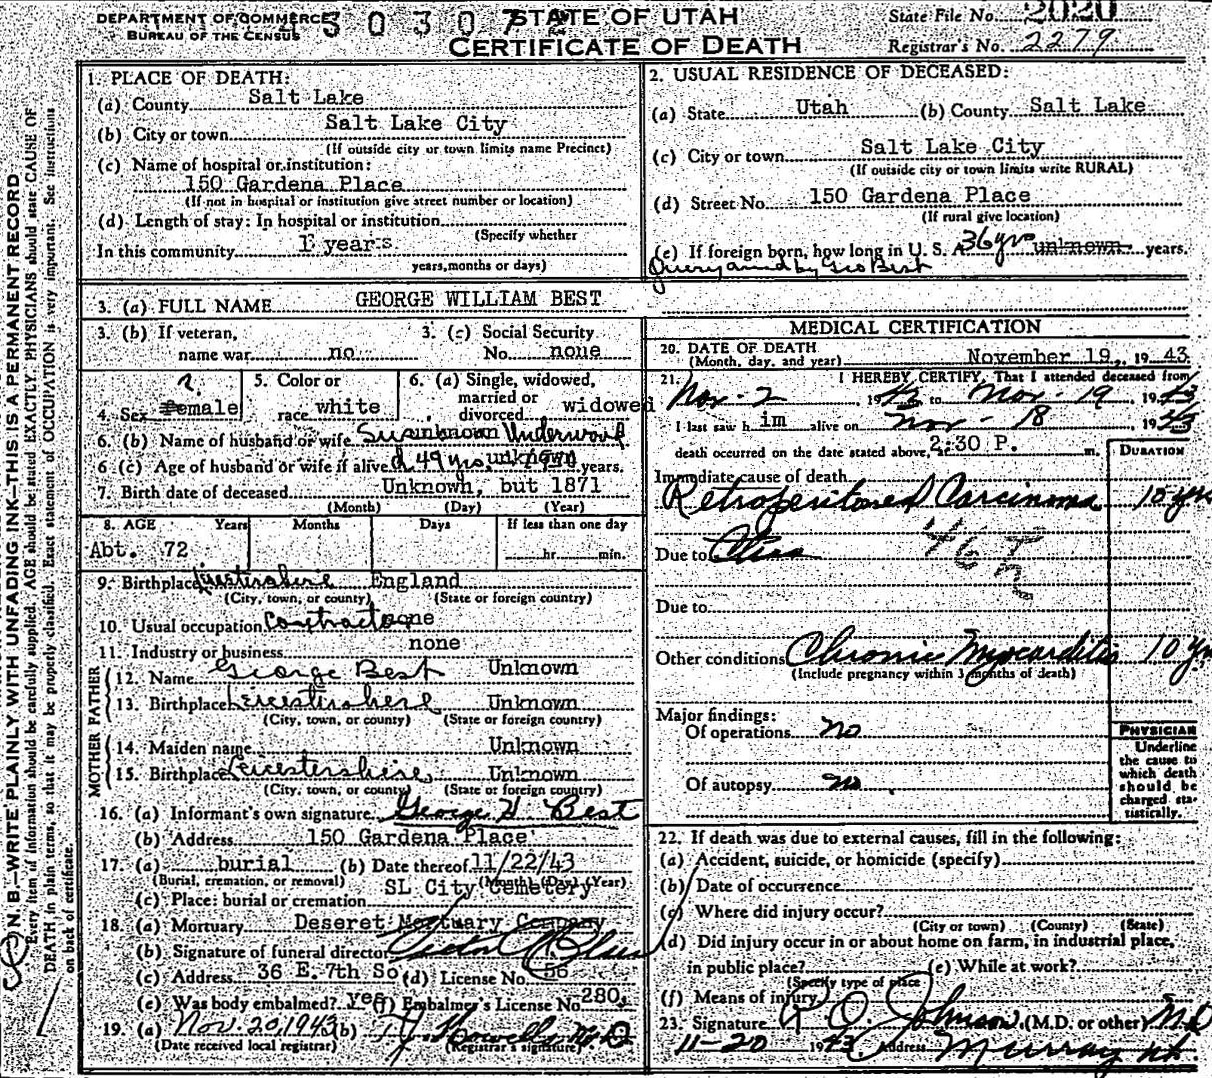 DEPARTMENT OF COMMERCE
BUREAU OF THE CENSUS
STATE OF UTAH
CERTIFICATE OF DEATH
State File No. 2020
Registrar's No. 2279
N. B.—WRITE PLAINLY WITH UNFADING INK—THIS IS A PERMANENT RECORD
Every item of information should be carefully supplied. AGE should be stated EXACTLY. PHYSICIANS should state CAUSE OF
DEATH in plain terms, so that it may be properly classified. Exact statement of OCCUPATION is very important. See instructions
on back of certificate.
1. PLACE OF DEATH:
(a) County Salt Lake
(b) City or town Salt Lake City
(If outside city or town limits name Precinct)
(c) Name of hospital or institution:
150 Gardena Place
(If not in hospital or institution give street number or location)
(d) Length of stay: In hospital or institution
(Specify whether
In this community years
years, months or days)
2. USUAL RESIDENCE OF DECEASED:
(a) State Utah (b) County Salt Lake
(c) City or town Salt Lake City
(If outside city or town limits write RURAL)
(d) Street No. 150 Gardena Place
(If rural give location)
(e) If foreign born, how long in U. S. A. 36 yrs unknown years.
Query and by Geo Best
3. (a) FULL NAME GEORGE WILLIAM BEST
3. (b) If veteran,
name war no
3. (c) Social Security
No. none
4. Sex Female
5. Color or
race white
6. (a) Single, widowed,
married or
divorced widowed
6. (b) Name of husband or wife Su unknown Underwood
6. (c) Age of husband or wife if alive d 49 yrs unknown years.
7. Birth date of deceased Unknown, but 1871
(Month) (Day) (Year)
8. AGE Years Months Days If less than one day
Abt. 72 hr. min.
9. Birthplace Leicestershire England
(City, town, or county) (State or foreign country)
10. Usual occupation Contractor none
11. Industry or business none
FATHER
12. Name George Best Unknown
13. Birthplace Leicestershire Unknown
(City, town, or county) (State or foreign country)
MOTHER
14. Maiden name Unknown
15. Birthplace Leicestershire Unknown
(City, town, or county) (State or foreign country)
16. (a) Informant's own signature George H. Best
(b) Address 150 Gardena Place
17. (a) burial (b) Date thereof 11/22/43
(Burial, cremation, or removal) (Month) (Day) (Year)
(c) Place: burial or cremation SL City Cemetery
18. (a) Mortuary Deseret Mortuary Company
(b) Signature of funeral director
(c) Address 36 E. 7th So (d) License No. 56
(e) Was body embalmed? yes (f) Embalmer's License No. 280
19. (a) Nov. 20, 1943 (b)
(Date received local registrar) (Registrar's signature)
MEDICAL CERTIFICATION
20. DATE OF DEATH
(Month, day, and year) November 19, 1943
21. I HEREBY CERTIFY, That I attended deceased from
Nov-2 1943 to Nov-19, 1943
I last saw h im alive on Nov-18, 1943
death occurred on the date stated above, at 2:30 P. m.
DURATION
Immediate cause of death
Retroperitoneal Carcinoma 10 yrs
Due to
46
Due to
Other conditions Chronic Myocarditis 10 yr
(Include pregnancy within 3 months of death)
Major findings:
Of operations no
Of autopsy no
PHYSICIAN
Underline
the cause to
which death
should be
charged sta-
tistically.
22. If death was due to external causes, fill in the following:
(a) Accident, suicide, or homicide (specify)
(b) Date of occurrence
(c) Where did injury occur?
(City or town) (County) (State)
(d) Did injury occur in or about home on farm, in industrial place,
in public place? (e) While at work?
(Specify type of place)
(f) Means of injury
23. Signature Johnson, (M.D. or other) M.D
11-20 1943 Address Murray Ut.